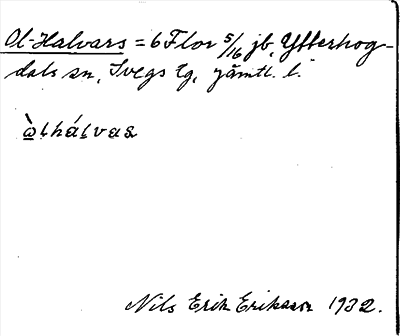 Ol-Halvars = 6 Flor 5/16 jb, Ytterhog-
dals sn, Svegs tg, Jämtl. l.
ò̱ḷháḷvas
Nils Erik Eriksson 1932.